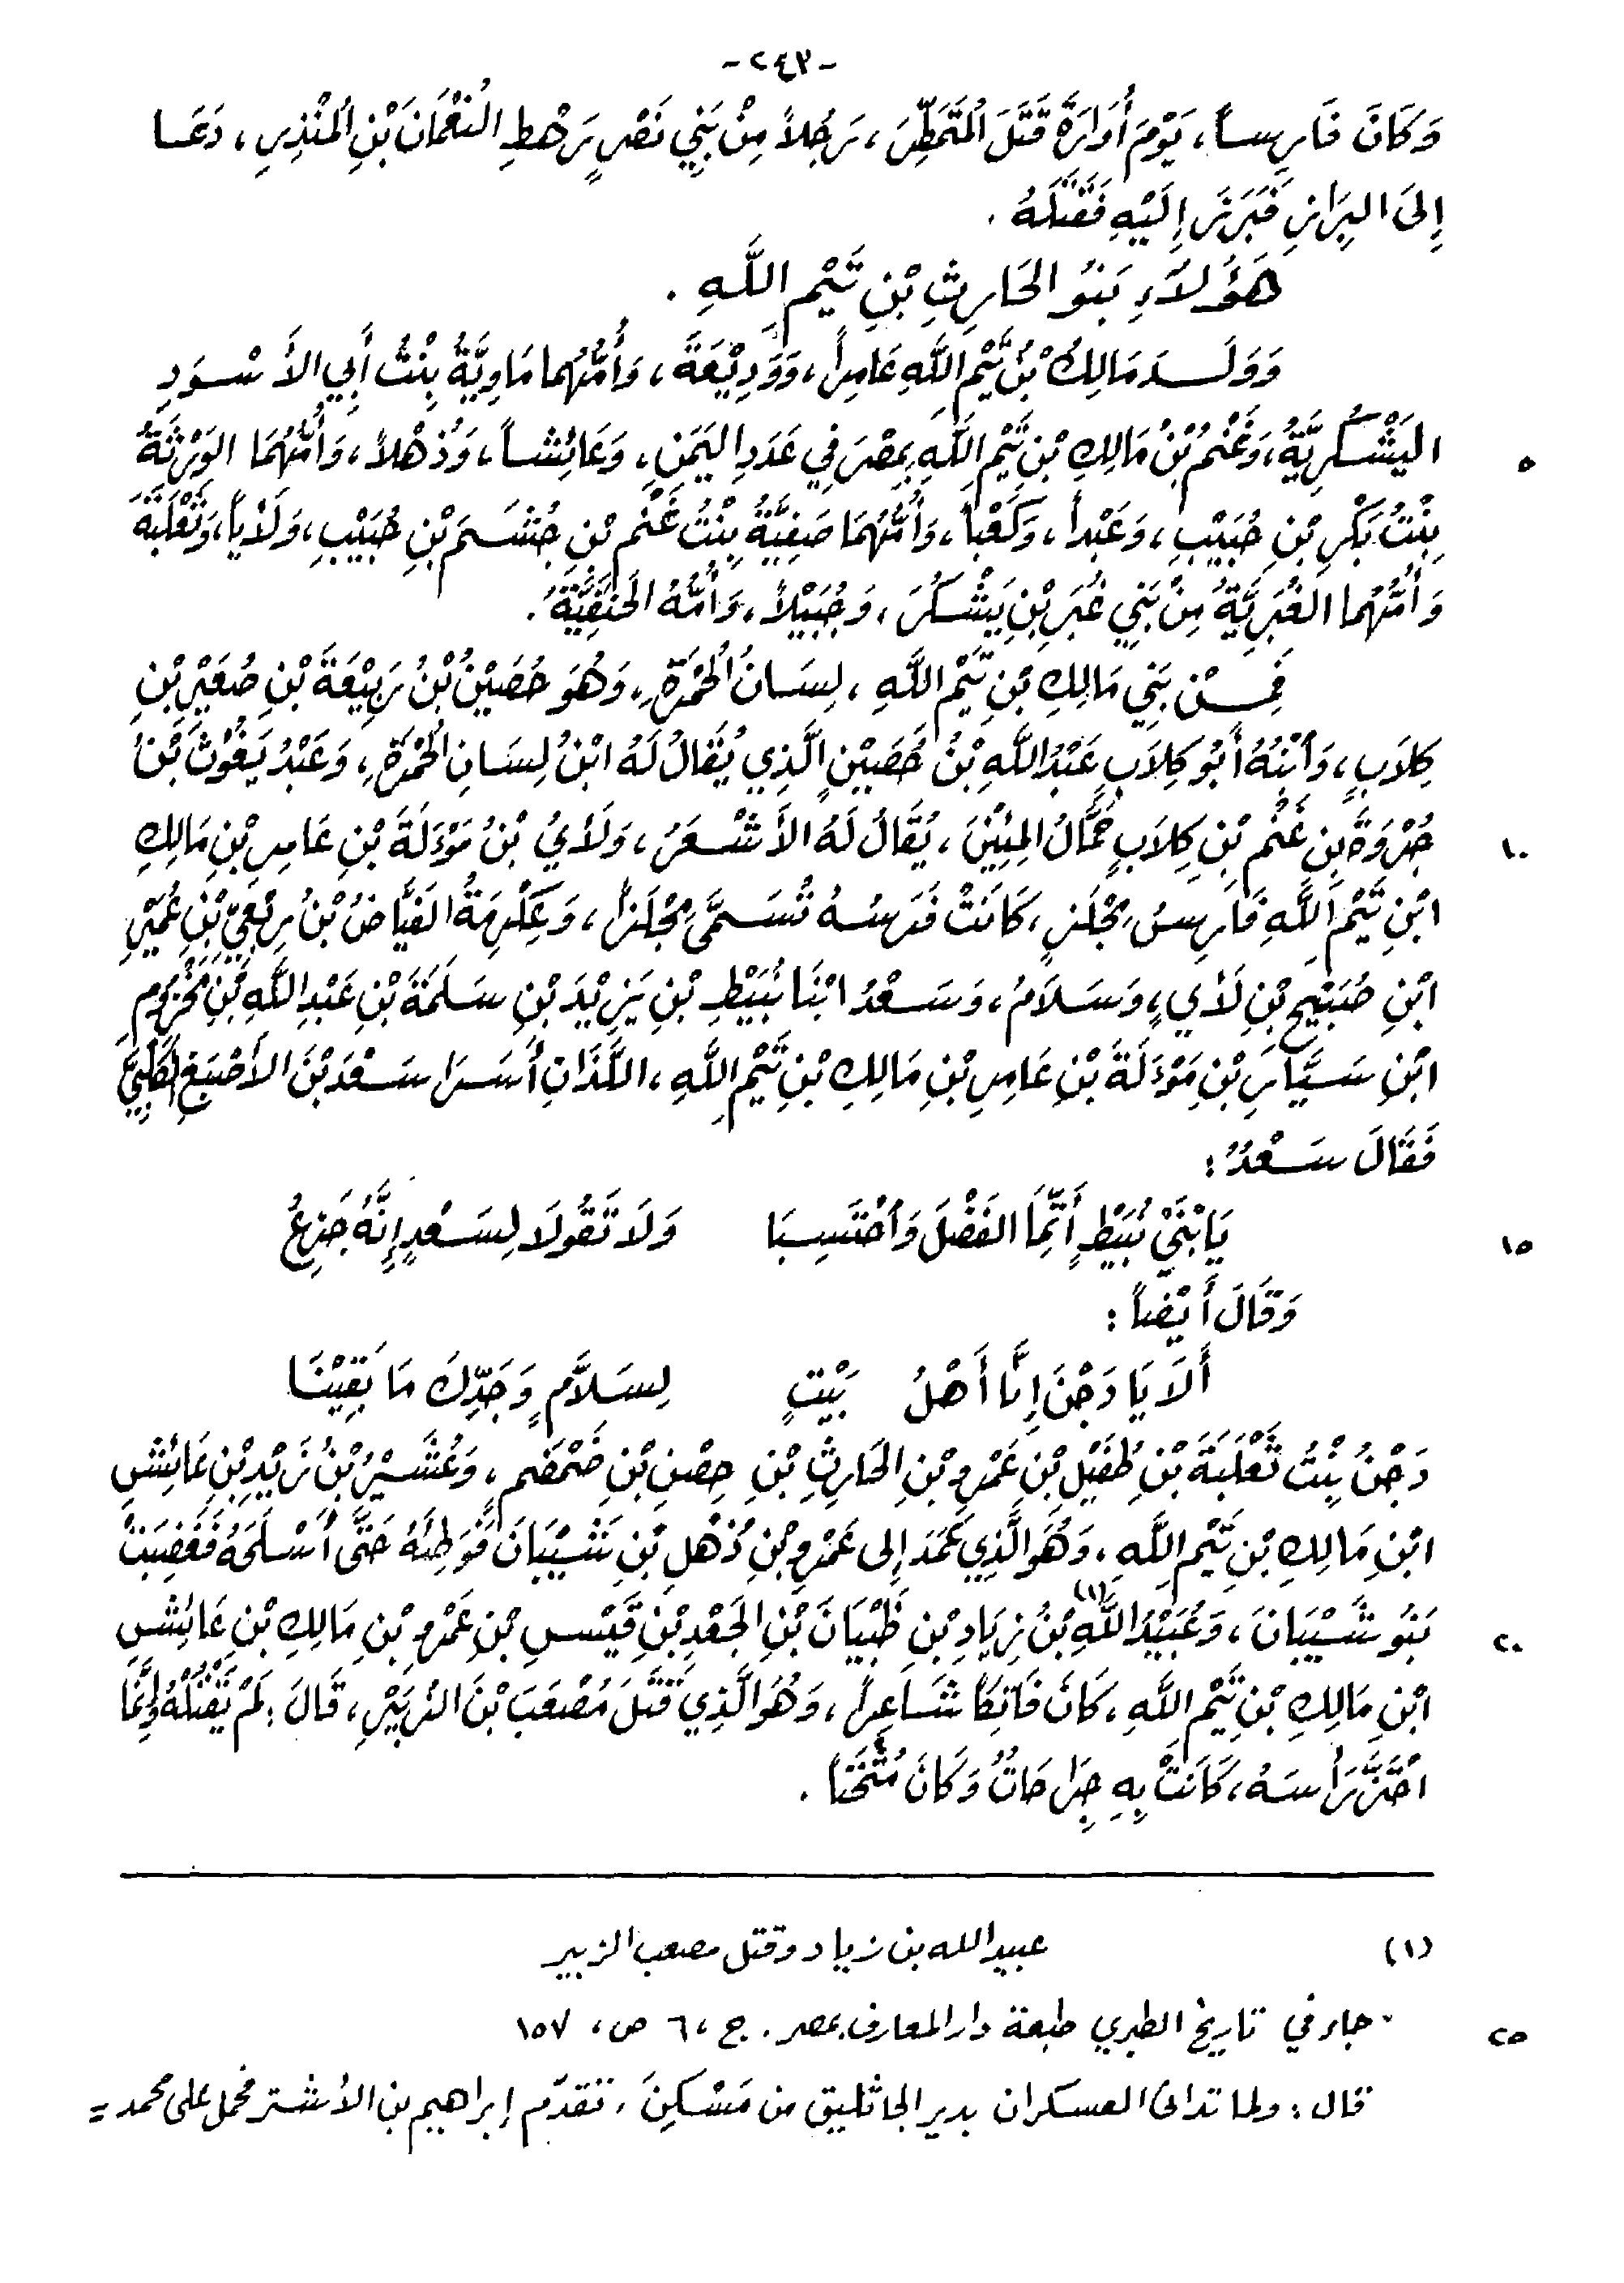 -٢٤٣-
وَكَانَ فَارِساً، يَوْمَ أُوَارَةَ قَتَلَ المُتَمَطِّرَ، رَجُلاً مِنْ بَنِي نَصْرٍ رَهْطِ النُعْمَانَ بْنِ المُنْذِرِ، دَعَا
إِلَى البِرَازِ فَبَرَزَ إِلَيْهِ فَقَتَلَهُ .
هَؤُلاَءِ بَنُو الحَارِثِ بْنِ تَيْمِ اللَّهِ .
وَوَلَدَ مَالِكُ بْنُ تَيْمِ اللَّهِ عَامِراً، وَوَدِيْعَةَ، وَأُمُّهُما مَاوِيَّةُ بِنْتُ أَبِي الأَسْوَدِ
اليَشْكُرِيَّةُ، وَغَنْمُ بْنُ مَالِكِ بْنِ تَيْمِ اللَّهِ بِمِصْرَ فِي عَدَدِ اليَمَنِ، وَعَائِشاً، وَذُهْلاً، وَأُمُّهُمَا الوَرْثَةُ
٥
بِنْتُ بَكْرِ بْنِ حُبَيْبِ، وَعَبْداً، وَكَعْباً، وَأُمُّهُمَا صَفِيَّةُ بِنْتُ غَنْمِ بْنِ جُشَمَ بْنِ حُبَيْبِ، وَلَأْياً، وَثَعْلَبَةَ
وَأُمُّهُما الغُبَرِيَّةُ مِنْ بَنِي غُبَرِ بْنِ يَشْكُرَ، وَجُبَيْلاً، وَأُمُّهُ الحَنَفِيَّةُ.
فَمِنْ بَنِي مَالِكِ بْنِ تَيْمِ اللَّهِ، لِسَانُ الحُمَّرَةِ، وَهُوَ حُصَيْنُ بْنُ رَبِيْعَةَ بْنِ صُعَيْرِ بْنِ
كِلاَبٍ، وَابْنُهُ أَبُو كِلاَبٍ عَبْدُ اللَّهِ بْنُ حُصَيْنٍ الَّذِي يُقَالُ لَهُ ابْنُ لِسَانِ الحُمَّرَةِ، وَعَبْدُ يَغُوْثَ بْنُ
جُرْوَةَ بْنِ غَنْمِ بْنِ كِلاَبٍ حَمَّالُ المِئِيْنَ، يُقَالُ لَهُ الأَشْعَرُ، وَلَأْيُ بْنُ مَوْءَلَةَ بْنِ عَامِرِ بْنِ مَالِكِ
١٠
ابْنِ تَيْمِ اللَّهِ فَارِسُ مِجْلَزٍ، كَانَتْ فَرَسُهُ تُسَمَّى مِجْلَزاً، وَعِكْرِمَةُ الفَيَّاضُ بْنُ رِبْعِيِّ بْنِ عُمَيْرِ
ابْنِ صُبَيْحِ بْنِ لَأْيٍ، وَسَلاَمُ، وَسَعْدُ ابْنَا نُبَيْطِ بْنِ يَزِيْدَ بْنِ سَلَمَةَ بْنِ عَبْدِ اللَّهِ بْنِ مَخْزُومِ
ابْنِ سَيَّارِ بْنِ مَوْءَلَةَ بْنِ عَامِرِ بْنِ مَالِكِ بْنِ تَيْمِ اللَّهِ، اللَّذَانِ أَسَرَا سَعْدَ بْنَ الأَصْبَغِ الكَلْبِيَّ
فَقَالَ سَعْدُ :
يَا بْنَيْ نُبَيْطٍ أَتِمَّا الفَضْلَ وَاحْتَسِبَا وَلَا تَقُولَا لِسَعْدٍ إِنَّهُ جَزِعُ
١٥
وَقَالَ أَيْضاً :
أَلَا يَا دَجْنَ إِنَّا أَهْلُ بَيْتٍ لِسَلاَّمٍ وَجَدِّكَ مَا بَقِيْنَا
دَجْنُ بِنْتُ ثَعْلَبَةَ بْنِ طُفَيْلِ بْنِ عَمْرِو بْنِ الحَارِثِ بْنِ حِصْنِ بْنِ ضَمْضَمِ، وَعُشَيْرُ بْنُ زَيْدِ بْنِ عَائِشِ
ابْنِ مَالِكِ بْنِ تَيْمِ اللَّهِ، وَهُوَ الَّذِي عَمَدَ إِلى عَمْرِو بْنِ ذُهْلِ بْنِ شَيْبَانَ فَوَطِئَهُ حَتَّى أَسْلَحَهُ فَغَضِبَتْ
بَنُو شَيْبَانَ، وَعُبَيْدُ اللَّهِ(١) بْنُ زِيَادِ بْنِ ظَبْيَانَ بْنِ الجَعْدِ بْنِ قَيْسِ بْنِ عَمْرِو بْنِ مَالِكِ بْنِ عَائِشِ
٢٠
ابْنِ مَالِكِ بْنِ تَيْمِ اللَّهِ، كَانَ فَاتِكاً شَاعِراً، وَهُوَ الَّذِي قَتَلَ مُصْعَبَ بْنَ الزُبَيْرِ، قَالَ : لَمْ يَقْتُلْهُ وَإِنَّمَا
احْتَزَّ رَأْسَهُ، كَانَتْ بِهِ جِرَاحَاتُ وَكَانَ مُثْخَناً .
(١) عبيد الله بن زياد وقتل مصعب الزبير
- جاء في تاريخ الطبري طبعة دار المعارف بمصر. ج ،٦ ص، ١٥٧
٢٥
قال : ولما تدانى العسكران بدير الجاثليق من مَسْكِنَ، تقدّم إبراهيم بن الأشتر فحمل على محمد =